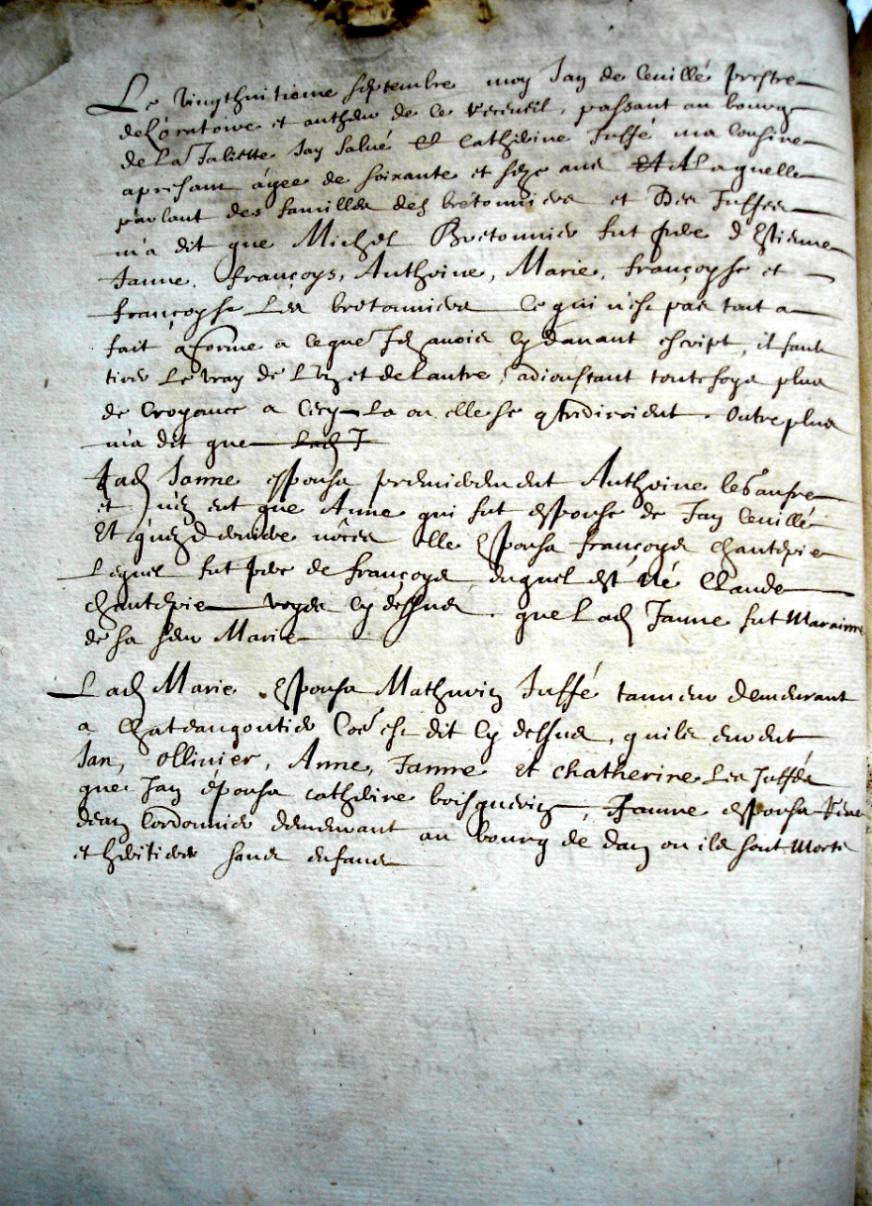 Le vingthuitiome septembre moy Jan de Cevillé prestre
de L'oratoire et autheur de ce recueil, passant au bourg
de La Jaliette Jay salué Catherine Juffé ma cousine
apresant agee de soixante et seze ans Laquelle
parlant des familles des bretonniers et Des Juffees
m'a dit que Michel Bretonnier fut pere d'Estienne
Janne, françoys, Anthoine, Marie, françoyse et
françoyse Les bretonniers Ce qui n'est pas tout a
fait a ce que Jen avois cy davant escript, il faut
tirer Le vray de L'un et de Lautre, adioustant toutefoys plus
de croyance a Cecy La ou elle se qtrediroient. Outre plus
m'a dit que Lad J
Lad Janne espousa premierement Anthoine
et n'en eut que Anne qui fut espouse de Jan Cevillé
Et qu'en dernieres nôces elle Espousa françoys chantepie
Lequel fut pere de françoys duquel est né Claude
chantepie voyes cy dessus. que Lad Janne fut Maraine
de sa seur Marie
Lad Marie Espousa Mathurin Juffé tanneur demeurant
a Chateaugontier Coe est dit cy dessus, quils eurent
Jan, Ollivier, Anne, Janne Et chatherine Les Juffés
que Jan épousa catherine boisguerin, Janne espousa
dean Cordonnier demeurant au bourg de dan ou ils sont Morts
et heritiers sans enfans